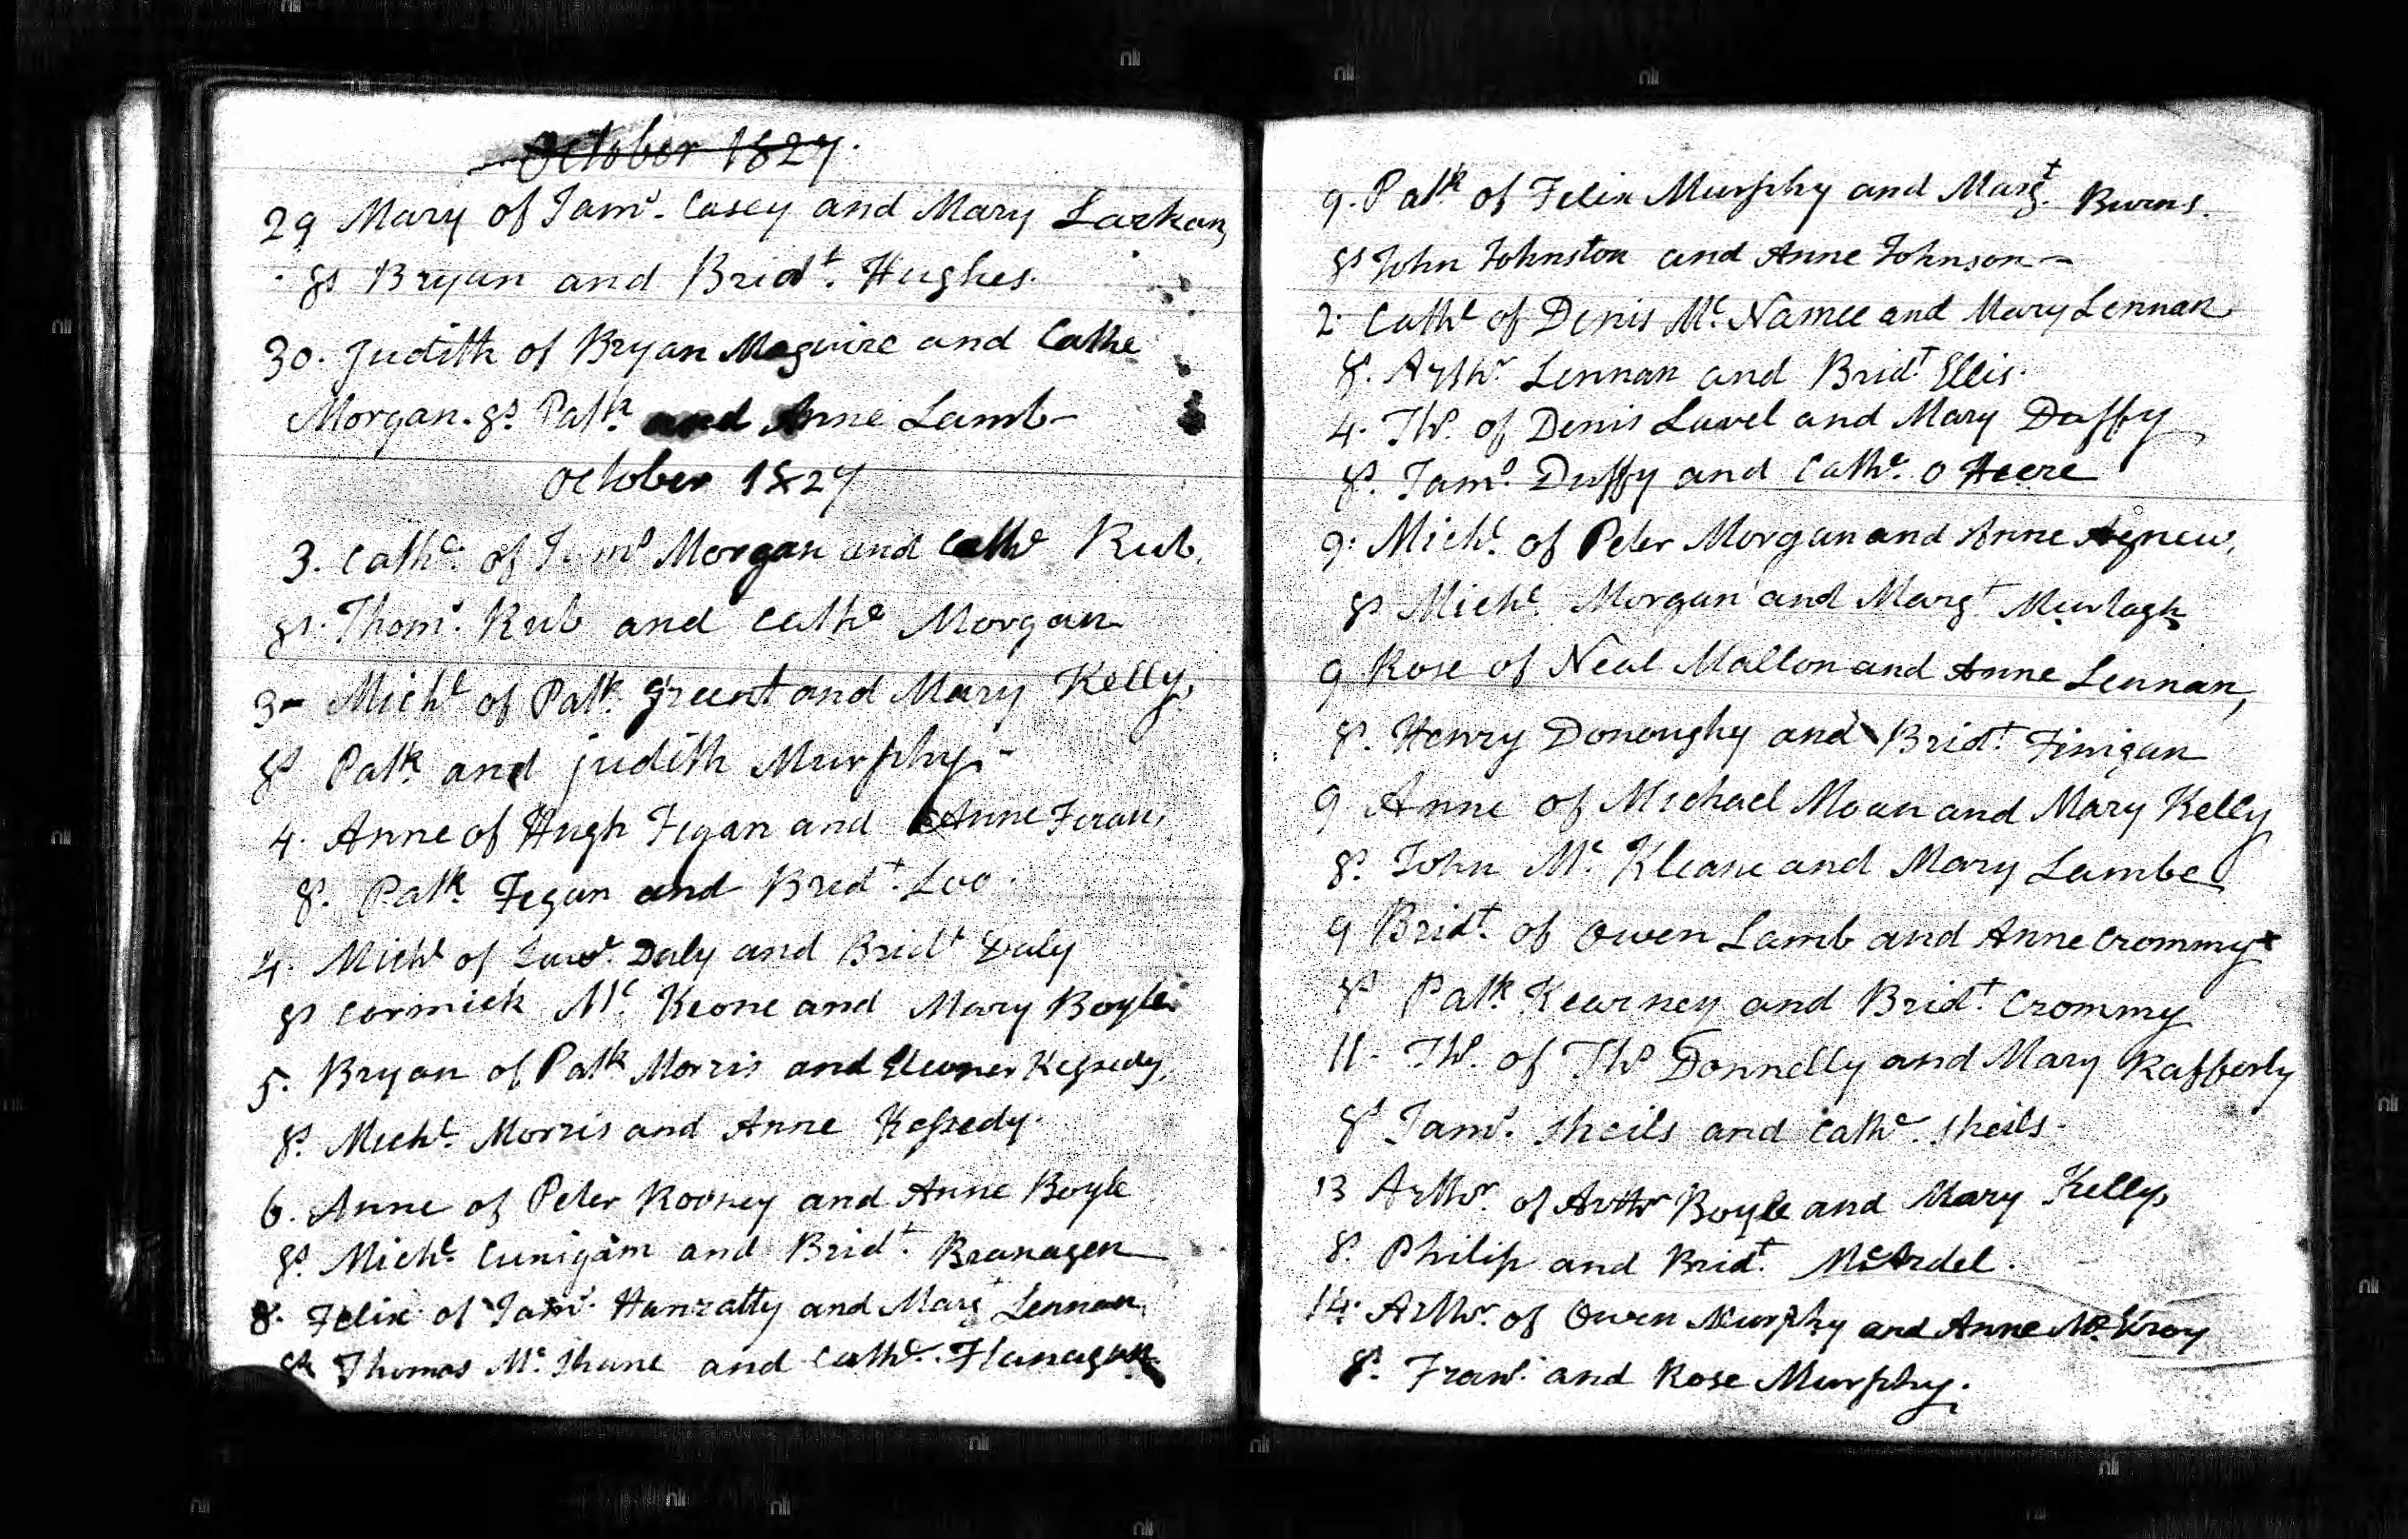 October 1827.
29 Mary of Jams. Casey and Mary Larkan,
gs Bryan and Bridt. Hughes.
30. Judith of Bryan Maguire and Cathe
Morgan. gs. Patk. and Anne Lamb-
October 1827
3. Cathe. of Morgan and Cathe Rub.
gs. Thoms. Rub and Cathe Morgan
3- Michl of Patk. and Mary Kelly,
gs Patk. and Judith Murphy.-
4. Anne of Hugh Fegan and Anne Feran,
gs. Patk. Fegan and Bridt. Loo.
4. Michl of Daly and Bridt Daly
gs Cormick Mc. Keone and Mary Boyle
5. Bryan of Patk Morris and Kessedy,
gs. Michl. Morris and Anne Kessedy.
6. Anne of Peter Rooney and Anne Boyle
gs. Michl. Cunigam and Bridt. Branagen
8. Felix of Jams. Hanratty and Lennan,
gs Thomas Mc. Shane and Cathe. Flanagan
9. Patk of Felix Murphy and Margt. Burns.
gs John Johnston and Anne Johnson-
2. Cathe of Denis Mc. Namee and Mary Lennan
gs. Arthr. Lennan and Bridt Ellis.
4. Ths. of Denis Lavel and Mary Duffy
gs. Jams. Duffy and Cathe. O Heere
9. Michl. of Peter Morgan and Anne Agnew,
gs Michl. Morgan and Margt Murtagh
9 Rose of Neal Mallon and Anne Lennan,
gs. Henry Donoughy and Bridt. Finigan
9 Anne of Michael Moan and Mary Kelly
gs. John Mc. Kleane and Mary Lambe
9 Bridt. of Owen Lamb and Anne Crommy
gs Patk. Kearney and Bridt. Crommy
11- Ths. of Ths Donnelly and Mary Rafferty
gs Jams. Sheils and Cathe. Sheils.
13 Arthr. of Arthr Boyle and Mary Kelly,
gs. Philip and Bridt. McArdel.
14. Arthr. of Owen Murphy and Anne Mc Elroy
gs. Frans. and Rose Murphy.